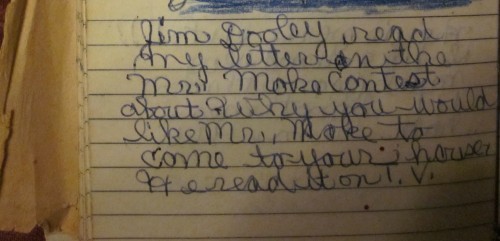 Jim Dooley read
my letter in the
Mr. Moke Contest
about why you would
like Mr. Moke to
come to your house
He read it on T.V.